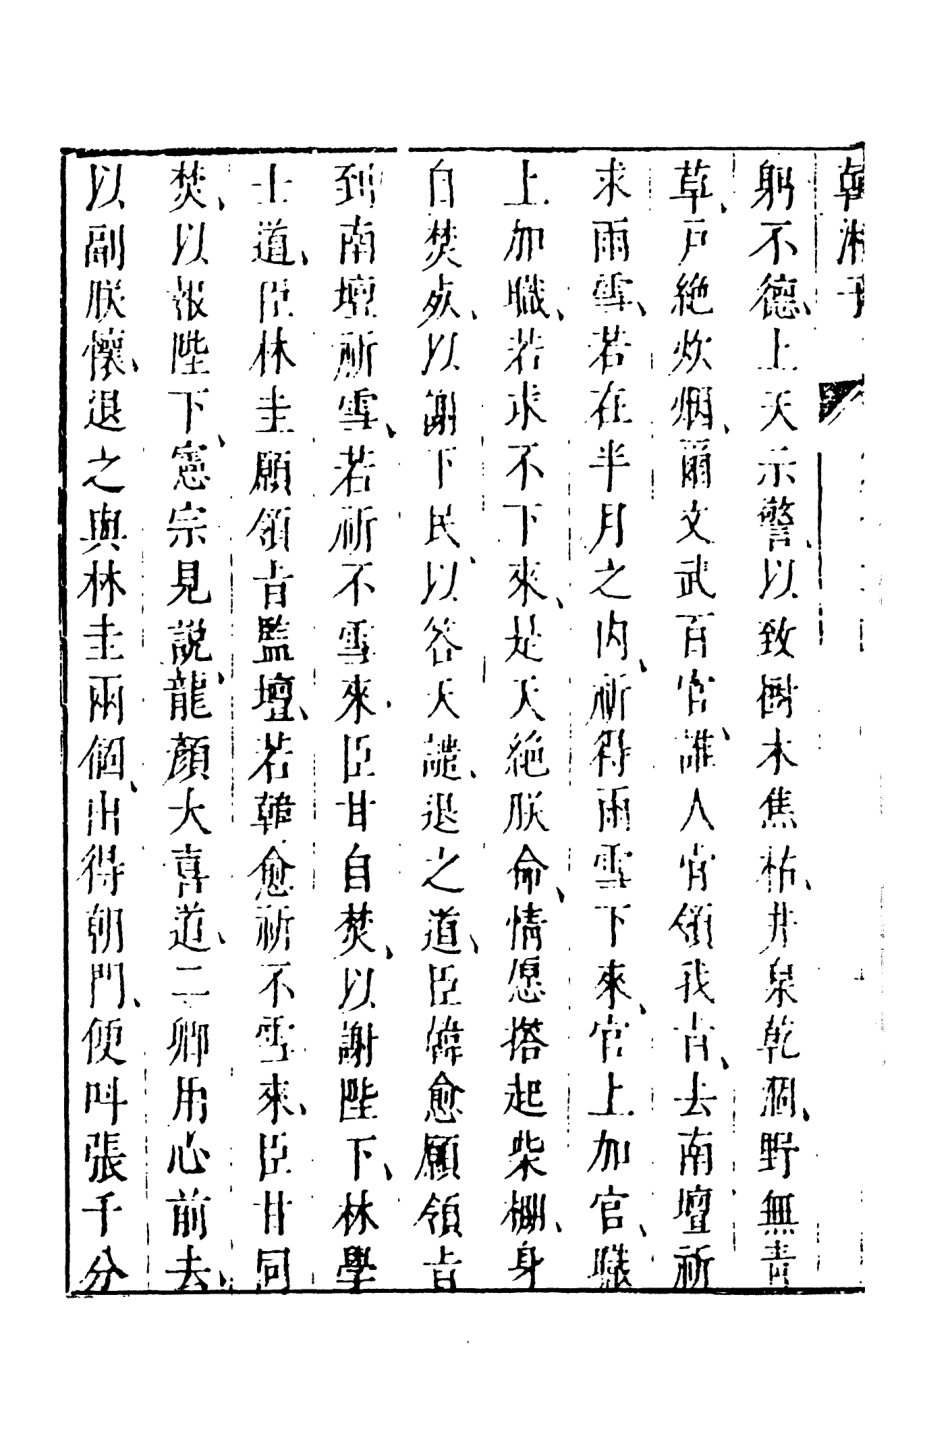 韓湘子
躬不德、上天示警、以致樹木焦枯、井泉乾涸、野無青
草、戸絶炊烟、爾文武百官、誰人肯領我旨、去南壇祈
求雨雪、若在半月之内、祈得雨雪下來、官上加官、職
上加職、若求不下來、是天絶朕命、情愿搭起柴棚、身
自焚死、以謝下民、以答天譴、退之道、臣韓愈願領旨
到南壇祈雪、若祈不雪來、臣甘自焚、以謝陛下、林學
士道、臣林圭願領旨監壇、若韓愈祈不雪來、臣甘同
焚、以報陛下、憲宗見説、龍顏大喜道、二卿用心前去、
以副朕懷、退之與林圭兩個、出得朝門、便呌張千分